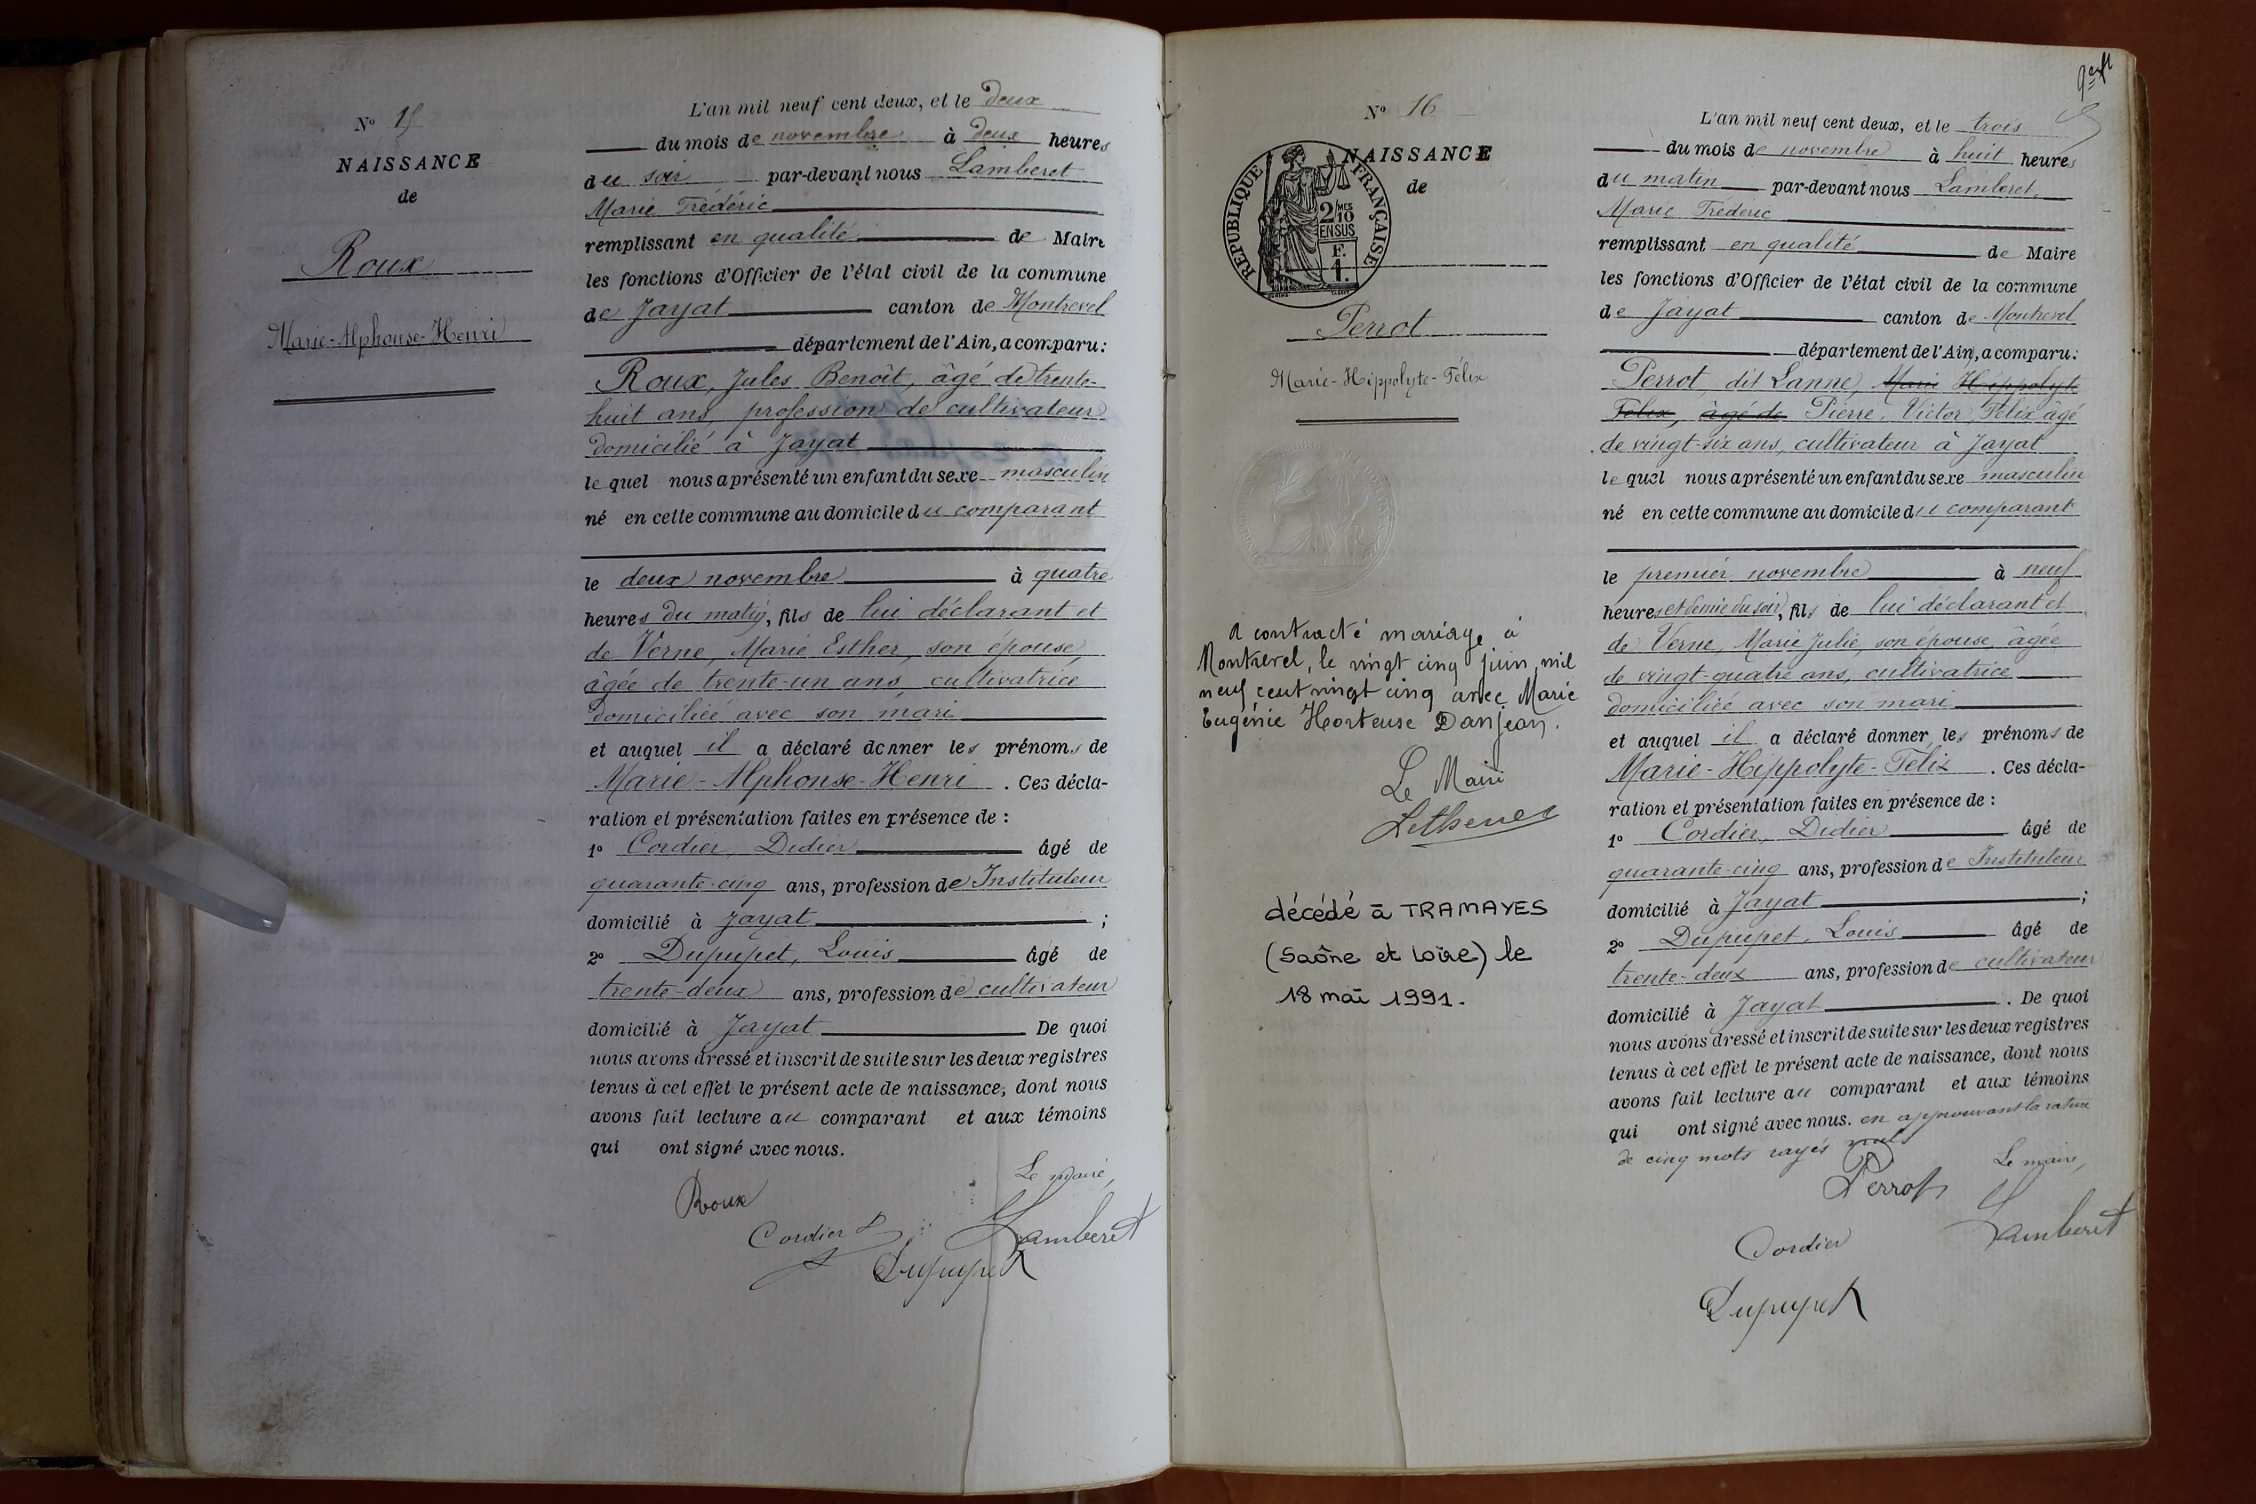 N° 15
NAISSANCE
de
Roux
Marie-Alphonse-Henri
L'an mil neuf cent deux, et le deux
du mois de novembre à deux heures
du soir par-devant nous Lamberet
Marie Frédéric
remplissant en qualité de Maire
les fonctions d'Officier de l'état civil de la commune
de Jayat canton de Montrevel
département de l'Ain, a comparu:
Roux, Jules Benoît, âgé de trente-
huit ans, profession de cultivateur
domicilié à Jayat
lequel nous a présenté un enfant du sexe masculin
né en cette commune au domicile du comparant
le deux novembre à quatre
heures du matin, fils de lui déclarant et
de Verne, Marie Esther, son épouse,
âgée de trente-un ans, cultivatrice
domiciliée avec son mari
et auquel il a déclaré donner les prénoms de
Marie-Alphonse-Henri. Ces décla-
ration et présentation faites en présence de :
1° Cordier, Didier âgé de
quarante-cinq ans, profession de Instituteur
domicilié à Jayat ;
2° Dupupet, Louis âgé de
trente-deux ans, profession de cultivateur
domicilié à Jayat De quoi
nous avons dressé et inscrit de suite sur les deux registres
tenus à cet effet le présent acte de naissance, dont nous
avons fait lecture au comparant et aux témoins
qui ont signé avec nous.
Le maire,
Roux
Cordier D
Lamberet
Dupupet
N° 16
NAISSANCE
de
REPUBLIQUE FRANÇAISE
2 MES
10
EN SUS
F.
1.
Perrot
Marie-Hippolyte-Félix
A contracté mariage à
Montrevel, le vingt cinq juin mil
neuf cent vingt cinq avec Marie
Eugénie Hortense Danjean.
Le Maire
décédé à TRAMAYES
(Saône et Loire) le
18 mai 1991.
L'an mil neuf cent deux, et le trois
du mois de novembre à huit heures
du matin par-devant nous Lamberet,
Marie Frédéric
remplissant en qualité de Maire
les fonctions d'Officier de l'état civil de la commune
de Jayat canton de Montrevel
département de l'Ain, a comparu:
Perrot, dit Lanne, Marie Hippolyte
Félix, âgé de Pierre, Victor, Félix âgé
de vingt-six ans, cultivateur à Jayat
lequel nous a présenté un enfant du sexe masculin
né en cette commune au domicile du comparant
le premier novembre à neuf
heures et demie du soir, fils de lui déclarant et
de Verne, Marie Julie, son épouse, âgée
de vingt-quatre ans, cultivatrice
domiciliée avec son mari
et auquel il a déclaré donner les prénoms de
Marie-Hippolyte-Félix. Ces décla-
ration et présentation faites en présence de :
1° Cordier, Didier âgé de
quarante-cinq ans, profession de Instituteur
domicilié à Jayat ;
2° Dupupet, Louis âgé de
trente-deux ans, profession de cultivateur
domicilié à Jayat. De quoi
nous avons dressé et inscrit de suite sur les deux registres
tenus à cet effet le présent acte de naissance, dont nous
avons fait lecture au comparant et aux témoins
qui ont signé avec nous. en approuvant la rature
de cinq mots rayés nuls
Le maire,
Perrot
Lamberet
Cordier
Dupupet